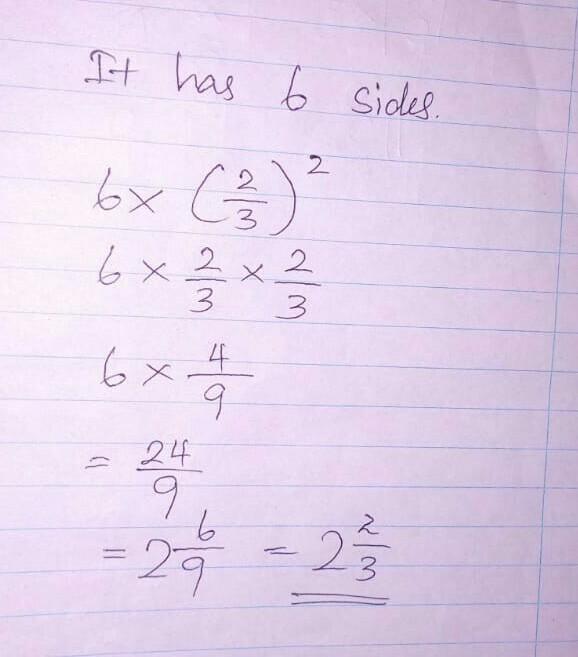 It has 6 sides.
6 × (2/3)²
6 × 2/3 × 2/3
6 × 4/9
= 24/9
= 2 6/9 = 2 2/3